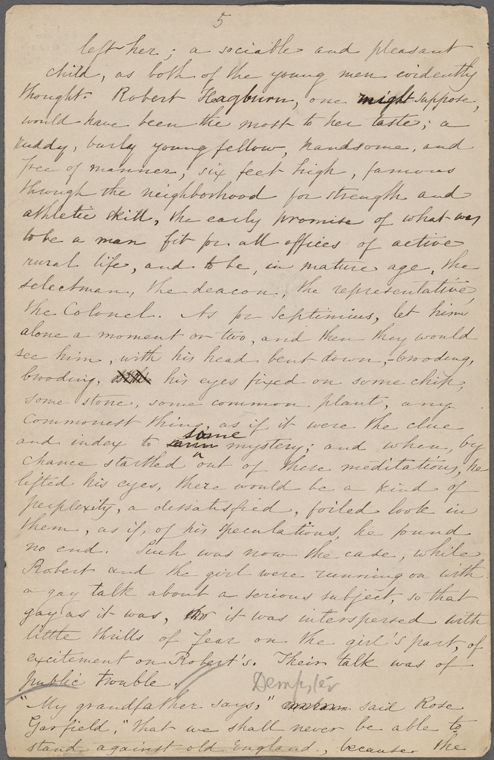 5
left her; a sociable and pleasant
child, as both of the young men evidently
thought. Robert Hagburn, one might suppose,
would have been the most to her taste; a
ruddy, burly young fellow, handsome, and
free of manner, six feet high, famous
through the neighborhood for strength and
athletic skill, the early promise of what was
to be a man fit for all offices of active
rural life, and to be, in mature age, the
selectman, the deacon, the representative,
the Colonel. As for Septimius, let him
alone a moment or two, and then they would
see him, with his head bent down, brooding,
brooding, his eyes fixed on some chip,
some stone, some common plant, any
commonest thing, as if it were the clue
and index to some mystery; and when, by
chance startled out of these meditations, he
lifted his eyes, there would be a kind of
perplexity, a dissatisfied, foiled look in
them, as if, of his speculations, he found
no end. Such was now the case, while
Robert and the girl were running on with
a gay talk about a serious subject, so that
gay as it was, it was interspersed with
little thrills of fear on the girl's part, of
excitement on Robert's. Their talk was of
public trouble.
Dempster
"My grandfather says," said Rose
Garfield, "that we shall never be able to
stand against old England, because the